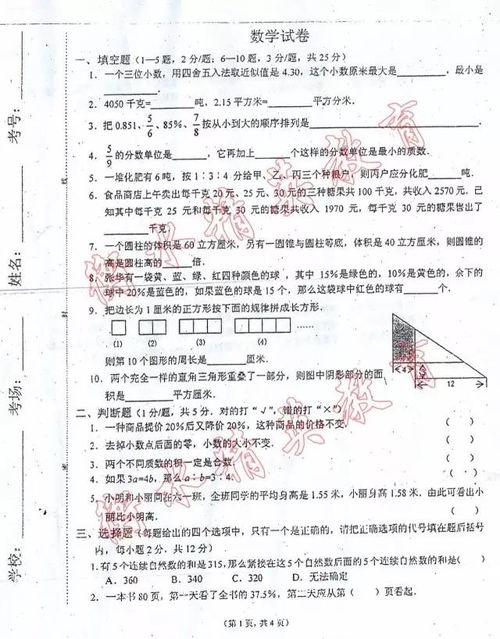 数学试卷
一、填空题（1—5题，2分/题；6—10题，3分/题，共25分）
1．一个三位小数，用四舍五入法取近似值是4.30，这个小数原来最大是________，最小是
________．
2．4050千克=________吨，2.15平方米=________平方分米．
3．把0.851、5/6、85%、7/8按从小到大的顺序排列是________
4．5/9的分数单位是________，它再加上________个这样的分数单位是最小的质数．
5．一堆化肥有6吨，按1：3：4分给甲、乙、丙三个种粮户，则丙户应分化肥________吨．
6．食品商店上午卖出每千克20元、25元、30元的三种糖果共100千克，共收入2570元．已
知其中每千克25元和每千克30元的糖果共收入1970元，每千克30元的糖果售出了
________千克．
7．一个圆柱的体积是60立方厘米，另有一圆锥与圆柱等底，体积是40立方厘米，则圆锥的
高是圆柱高的________倍．
8．张华有一袋黄、蓝、绿、红四种颜色的球，其中15%是绿色的，10%是黄色的，余下的
球中20%是蓝色的，如果蓝色的球是15个，那么这袋球中红色的球有________个．
9．把边长为1厘米的正方形按下面的规律拼成长方形．
(1) (2) (3) (4)
则第10个图形的周长是________厘米．
10．两个完全一样的直角三角形重叠了一部分，则图中阴影部分的面
积是________平方厘米．
4
12
二、判断题（1分/题，共5分．对的打“√”，错的打“×”）
1．一种商品提价20%后又降价20%，这种商品的价格不变． （ ）
2．去掉小数点后面的零，小数的大小不变． （ ）
3．两个不同质数的积一定是合数． （ ）
4．如果3a=4b，那么a：b=3：4． （ ）
5．小明和小丽同在六一班，全班同学的平均身高是1.55米，小丽身高1.58米，由此可看出小
丽比小明高． （ ）
三、选择题（每题给出的四个选项中，只有一个是正确的，请把正确选项的代号填在题后括号
内，每小题2分，共12分）
1．有5个连续自然数的和是315，那么紧接在这5个自然数后面的5个连续自然数的和是（ ）
A．360 B．340 C．320 D．无法确定
2．一本书80页，第一天看了全书的37.5%，第二天应从第（ ）页看起．
（第1页，共4页）
考号：
姓名：
考场：
学校：
精英教育